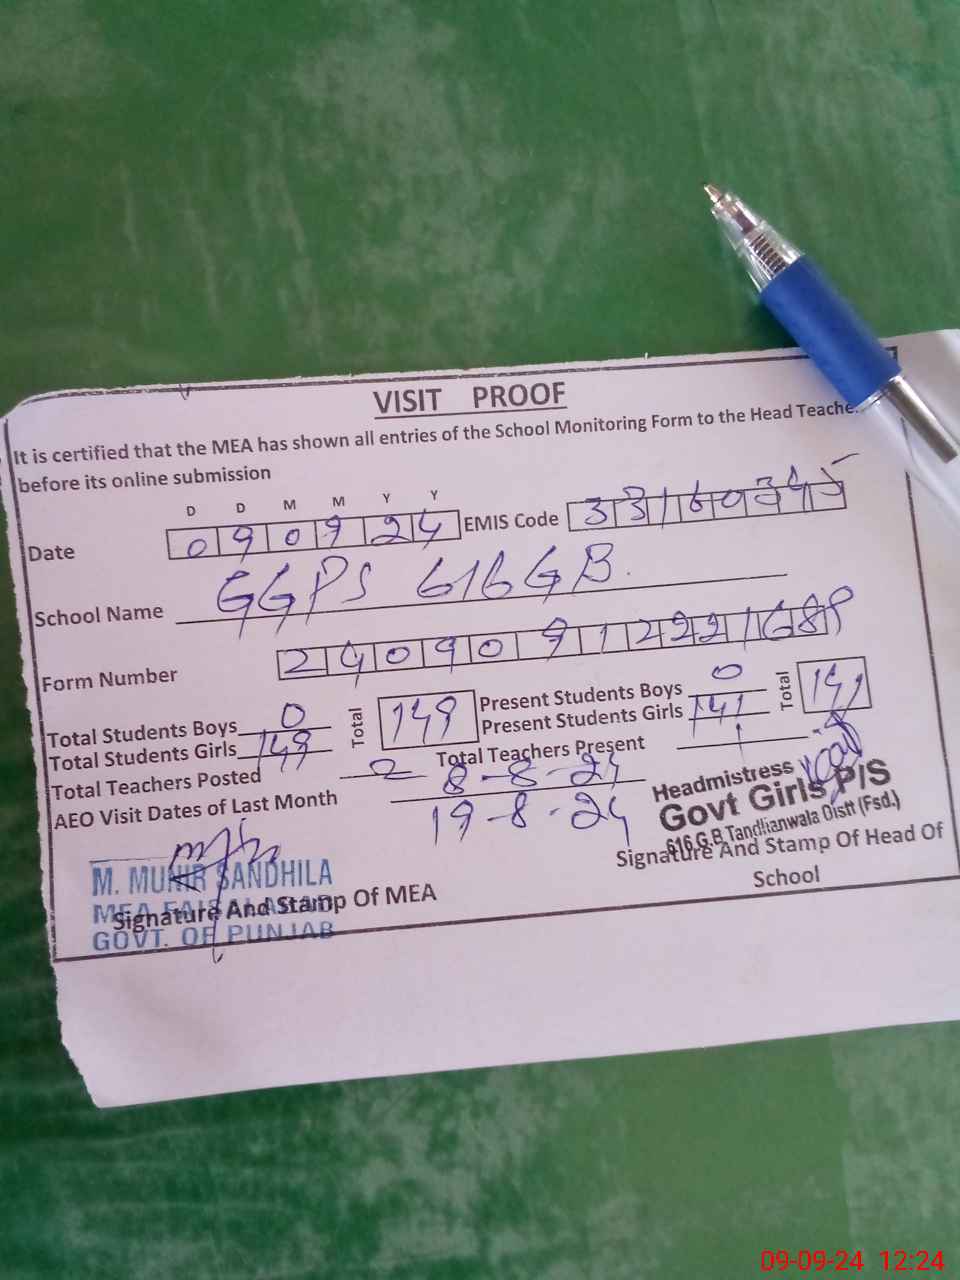 VISIT PROOF
It is certified that the MEA has shown all entries of the School Monitoring Form to the Head Teache
before its online submission
D D M M Y Y
Date 0 9 0 9 2 4 EMIS Code 3 3 1 6 0 3 4 5
School Name GGPS 616 GB.
Form Number 2 4 0 9 0 9 1 2 2 2 1 6 8 9
Total Students Boys 0 Total 149 Present Students Boys 0 Total 141
Total Students Girls 149 Present Students Girls 141
Total Teachers Posted 2 Total Teachers Present
AEO Visit Dates of Last Month 8-8-24
19-8-24
Headmistress
Govt Girls P/S
616 G.B Tandlianwala Distt (Fsd.)
Signature And Stamp Of Head Of
School
M. MUNIR SANDHILA
Signature And Stamp Of MEA
GOVT. OF PUNJAB
09-09-24 12:24